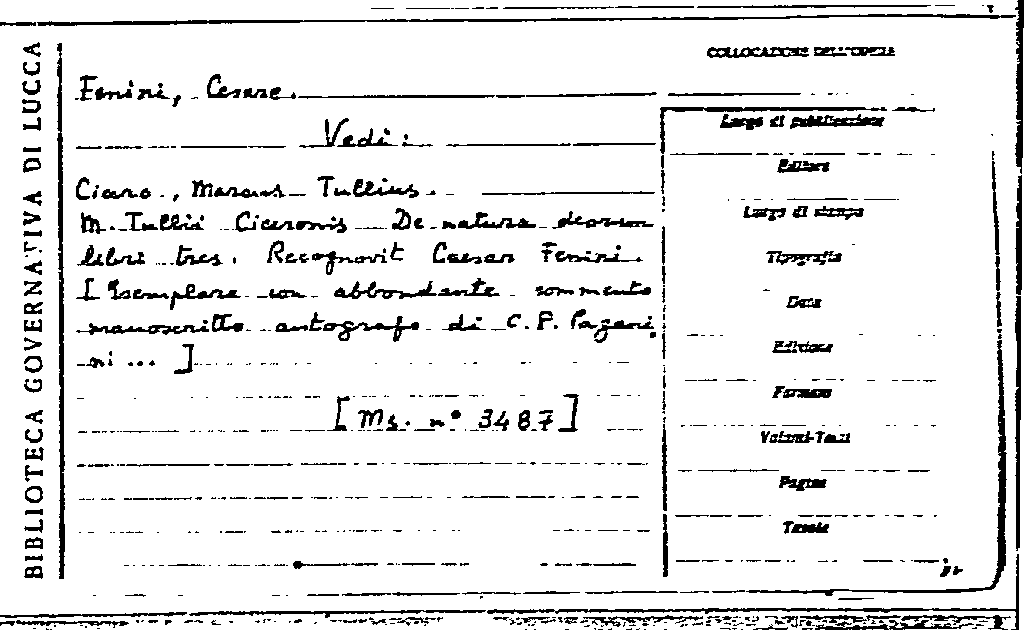 BIBLIOTECA GOVERNATIVA DI LUCCA
COLLOCAZIONE DELL'OPERA
Fenini, Cesare.
Vedi:
Cicero, Marcus Tullius.
M. Tullii Ciceronis De natura deorum
libri tres. Recognovit Caesar Fenini.
[Esemplare con abbondante commento
manoscritto autografo di C. P. Pagani
ni ... ]
[Ms. n° 3487]
Luogo di pubblicazione
Editore
Luogo di stampa
Tipografia
Data
Edizione
Formato
Volumi-Tomi
Pagine
Tavole